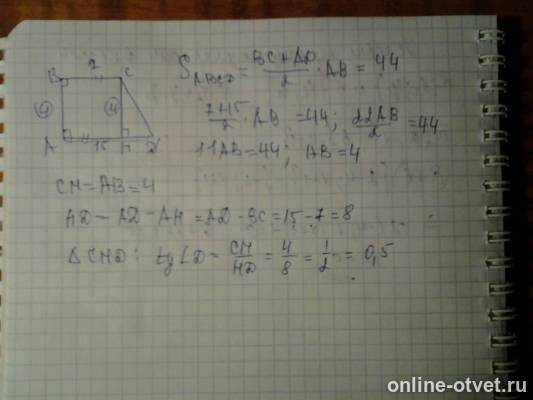 B 7 C
④ ④
A 15 H D
S ABCD = BC+AD/2 · AB = 44
7+15/2 · AB = 44; 22AB/2 = 44
11AB=44; AB=4
CH=AB=4
HD=AD-AH=AD-BC=15-7=8
ΔCHD: tg∠D = CH/HD = 4/8 = 1/2 = 0,5
online-otvet.ru